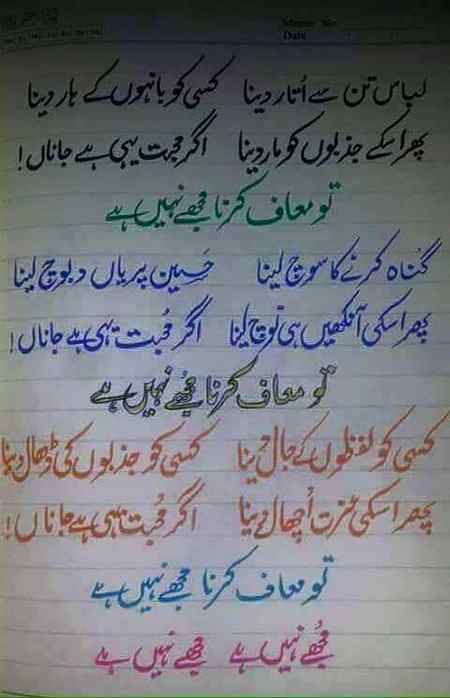 Date
لباس تن سے اُتار دینا کسی کو بانہوں کے ہار دینا
پھر اسکے جذبوں کو مار دینا اگر محبت یہی ہے جاناں!
تو معاف کرنا مجھے نہیں ہے
گناہ کرنے کا سوچ لینا حَسین پریاں دبوچ لینا
پھر اسکی آنکھیں ہی نوچ لینا اگر مُحبت یہی ہے جاناں!
تو معاف کرنا مجھے نہیں ہے
کسی کو لفظوں کے جال دینا کسی کو جذبوں کی ڈھال دینا
پھر اسکی عزت اُچھال دینا اگر مُحبت یہی ہے جاناں!
تو معاف کرنا مجھے نہیں ہے
مُجھے نہیں ہے مجھے نہیں ہے